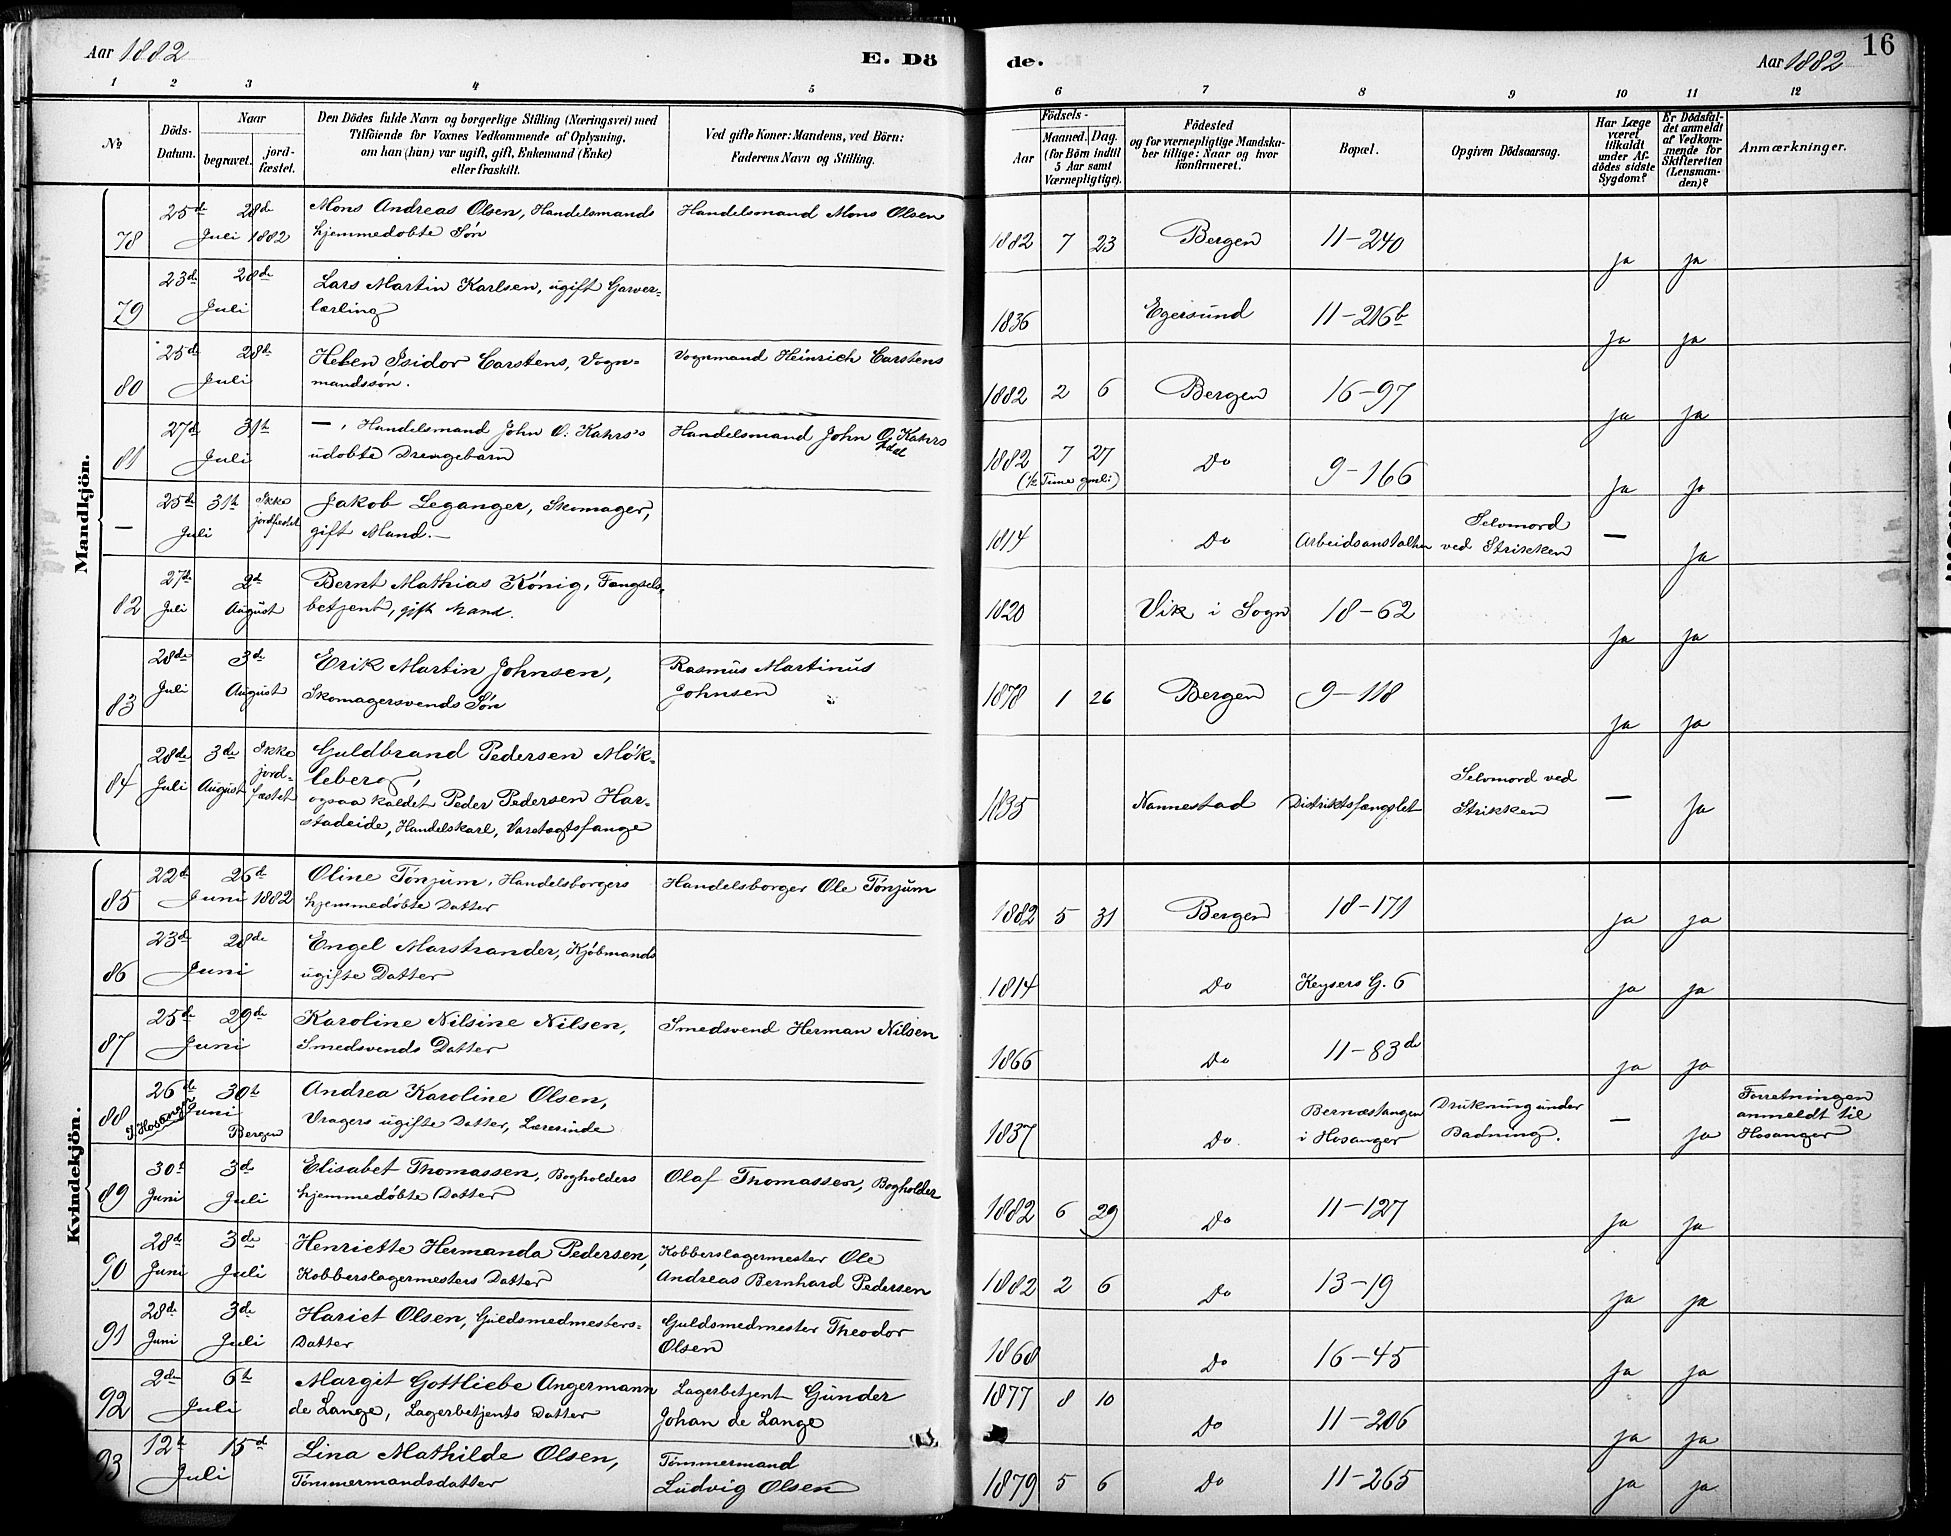 Aar 1882
E. Dö
de.
Aar 1882
16
1 2 3 4 5 6 7 8 9 10 11 12
№
Döds-
Datum.
Naar
begravet.
jord-
fæstet.
Den Dödes fulde Navn og borgerlige Stilling (Næringsvei) med
Tilföiende for Voxnes Vedkommende af Oplysning,
om han (hun) var ugift, gift, Enkemand (Enke)
eller fraskilt.
Ved gifte Koner: Mandens, ved Börn:
Faderens Navn og Stilling.
Födsels-
Aar
Maaned. Dag.
(for Börn indtil
5 Aar samt
Værnepligtige).
Födested
og for værnepligtige Mandska-
ber tillige: Naar og hvor
konfirmeret.
Bopæl.
Opgiven Dödsaarsag.
Har Læge
været
tilkaldt
under Af-
dödes sidste
Sygdom?
Er Dödsfal-
det anmeldt
af Vedkom-
mende for
Skifteretten
(Lensman-
den)?
Anmærkninger.
Mandkjön.
78 25de 28de Mons Andreas Olsen, Handelsmands Handelsmand Mons Olsen
Juli 1882 hjemmedøbte Søn
1882 7 23 Bergen 11-240 ja ja
79 23de 28de Lars Martin Karlsen, ugift Garver-
Juli lærling
1836 Egersund 11-216b ja ja
80 25de 28de Heben Isidor Carstens, Vogn- Vognmand Heinrich Carstens
Juli mandssøn.
1882 2 6 Bergen 16-97 ja ja
81 27de 31te —, Handelsmand John O. Kahrs's Handelsmand John O. Kahrs
Juli udøbte Drengebarn
1882 7 27 Do 9-166 ja ja
(½ Time gmli)
— 25de 31te Ikke Jakob Leganger, Skomager,
Juli jordfæstet gift Mand.—
1814 Do Arbeidsanstalten Selvmord
ved Strikken — ja
82 27de 2d Bernt Mathias König, Fængsels-
Juli August betjent, gift Mand.
1820 Vik i Sogn 18-62 ja ja
83 28de 3de Erik Martin Johnsen, Rasmus Martinus
Juli August Skomagersvends Søn Johnsen
1878 1 26 Bergen 9-118 ja ja
84 28de 3de Ikke Guldbrand Pedersen Møk-
Juli August jord- leberg,
fæstet ogsaa kaldet Peder Pedersen Har-
stadeide, Handelskarl, Varetægtsfange
1835 Nannestad Distriktsfængslet Selvmord ved
Strikken — ja
Kvindekjön.
85 22de 26de Oline Tønjum, Handelsborgers Handelsborger Ole Tønjum
Juni 1882 hjemmedøbte Datter
1882 5 31 Bergen 18-171 ja ja
86 23de 28de Engel Marstrander, Kjøbmands
Juni ugifte Datter
1814 Do Keysers G. 6 ja ja
87 25de 29de Karoline Nilsine Nilsen, Smedsvend Herman Nilsen
Juni Smedsvends Datter
1866 Do 11-83de ja ja
88 26de 30te Andrea Karoline Olsen,
I Hosanger Juni Bergen Vragers ugifte Datter, Lærerinde
1837 Do Bernæstangen
i Hosanger Drukning under
Badning. — ja Forretningen
anmeldt til
Hosanger
89 30te 3de Elisabet Thomassen, Bogholders Olaf Thomassen, Bogholder
Juni Juli hjemmedøbte Datter
1882 6 29 Do 11-127 ja ja
90 28de 3de Henriette Hermanda Pedersen, Kobberslagermester Ole
Juni Juli Kobberslagermesters Datter Andreas Bernhard Pedersen
1882 2 6 Do 13-19 ja ja
91 28de 3de Hariet Olsen, Guldsmedmesters- Guldsmedmester Theodor
Juni Juli Datter Olsen
1868 Do 16-45 ja ja
92 2de 6te Margit Gottliebe Angermann Lagerbetjent Gunder
Juli de Lange, Lagerbetjents Datter Johan de Lange
1877 8 10 Do 11-206 ja ja
93 12te 15de Lina Mathilde Olsen, Tømmermand
Juli Tømmermandsdatter Ludvig Olsen
1879 5 6 Do 11-265 ja ja